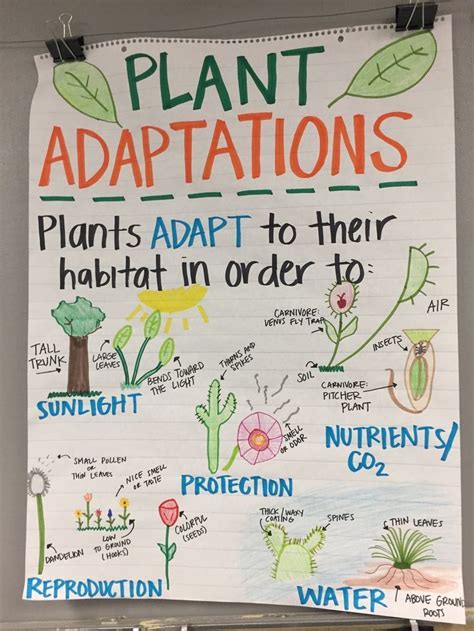 PLANT
ADAPTATIONS
Plants ADAPT to their
habitat in order to:
TALL
TRUNK
LARGE
LEAVES
BENDS TOWARD
THE LIGHT
SUNLIGHT
THORNS AND
SPIKES
SMELL
OR ODOR
PROTECTION
CARNIVORE:
VENUS FLY TRAP
SOIL
AIR
INSECTS
CARNIVORE:
PITCHER
PLANT
NUTRIENTS/
CO2
SMALL POLLEN
OR
THIN LEAVES
NICE SMELL
OR TASTE
DANDELION
LOW
TO GROUND
(HOOKS)
COLORFUL
(SEEDS)
REPRODUCTION
THICK/WAXY
COATING
SPINES
THIN LEAVES
ABOVE GROUND
ROOTS
WATER